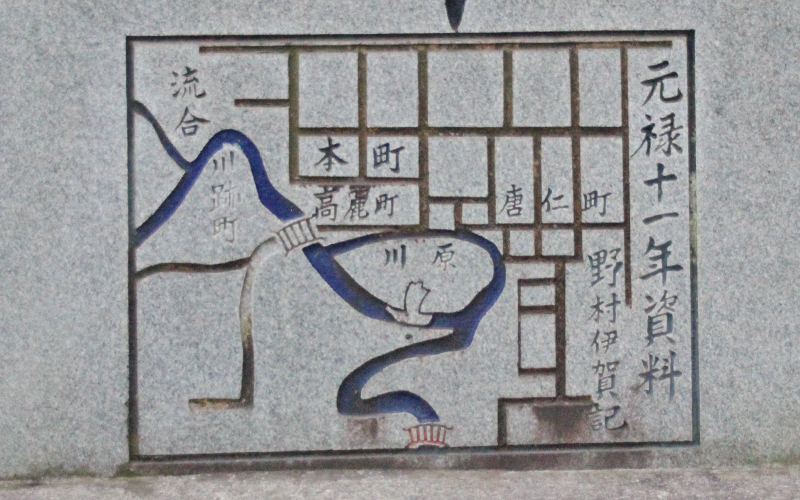 元禄十一年資料
野村伊賀記
唐仁町
本町
高麗町
川原
流合
川跡町